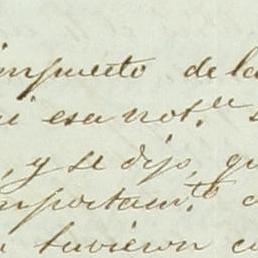 impuesto de la
esa not.e
, y se dijo, qu
importan.to
tuvieron co